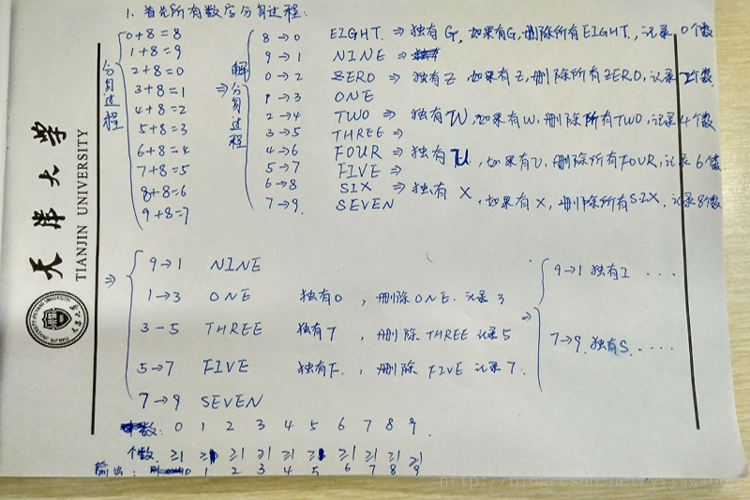 1. 首先所有数字分身过程:
分身过程
0+8=8
1+8=9
2+8=0
3+8=1
4+8=2
5+8=3
6+8=4
7+8=5
8+8=6
9+8=7
⇒ 解分身过程
8→0 EIGHT ⇒ 独有G, 如果有G,删除所有EIGHT, 记录0个数
9→1 NINE ⇒
0→2 ZERO ⇒ 独有Z 如果有Z, 删除所有ZERO, 记录2个数
1→3 ONE
2→4 TWO ⇒ 独有W, 如果有W, 删除所有TWO, 记录4个数
3→5 THREE ⇒
4→6 FOUR ⇒ 独有U, 如果有U, 删除所有FOUR, 记录6个数
5→7 FIVE ⇒
6→8 SIX ⇒ 独有X, 如果有X, 删除所有SIX. 记录8个数
7→9. SEVEN
⇒
9→1 NINE
1→3 ONE 独有O, 删除ONE. 记录3
3-5 THREE 独有T, 删除THREE 记录5
5→7 FIVE 独有F. 删除FIVE 记录7.
7→9 SEVEN
⇒
9→1 独有I ....
7→9. 独有S. ....
数: 0 1 2 3 4 5 6 7 8 9
个数. ≥1 ≥1 ≥1 ≥1 ≥1 ≥1 ≥1 ≥1 ≥1 ≥1
输出: 0 1 2 3 4 5 6 7 8 9
天津大学
TIANJIN UNIVERSITY